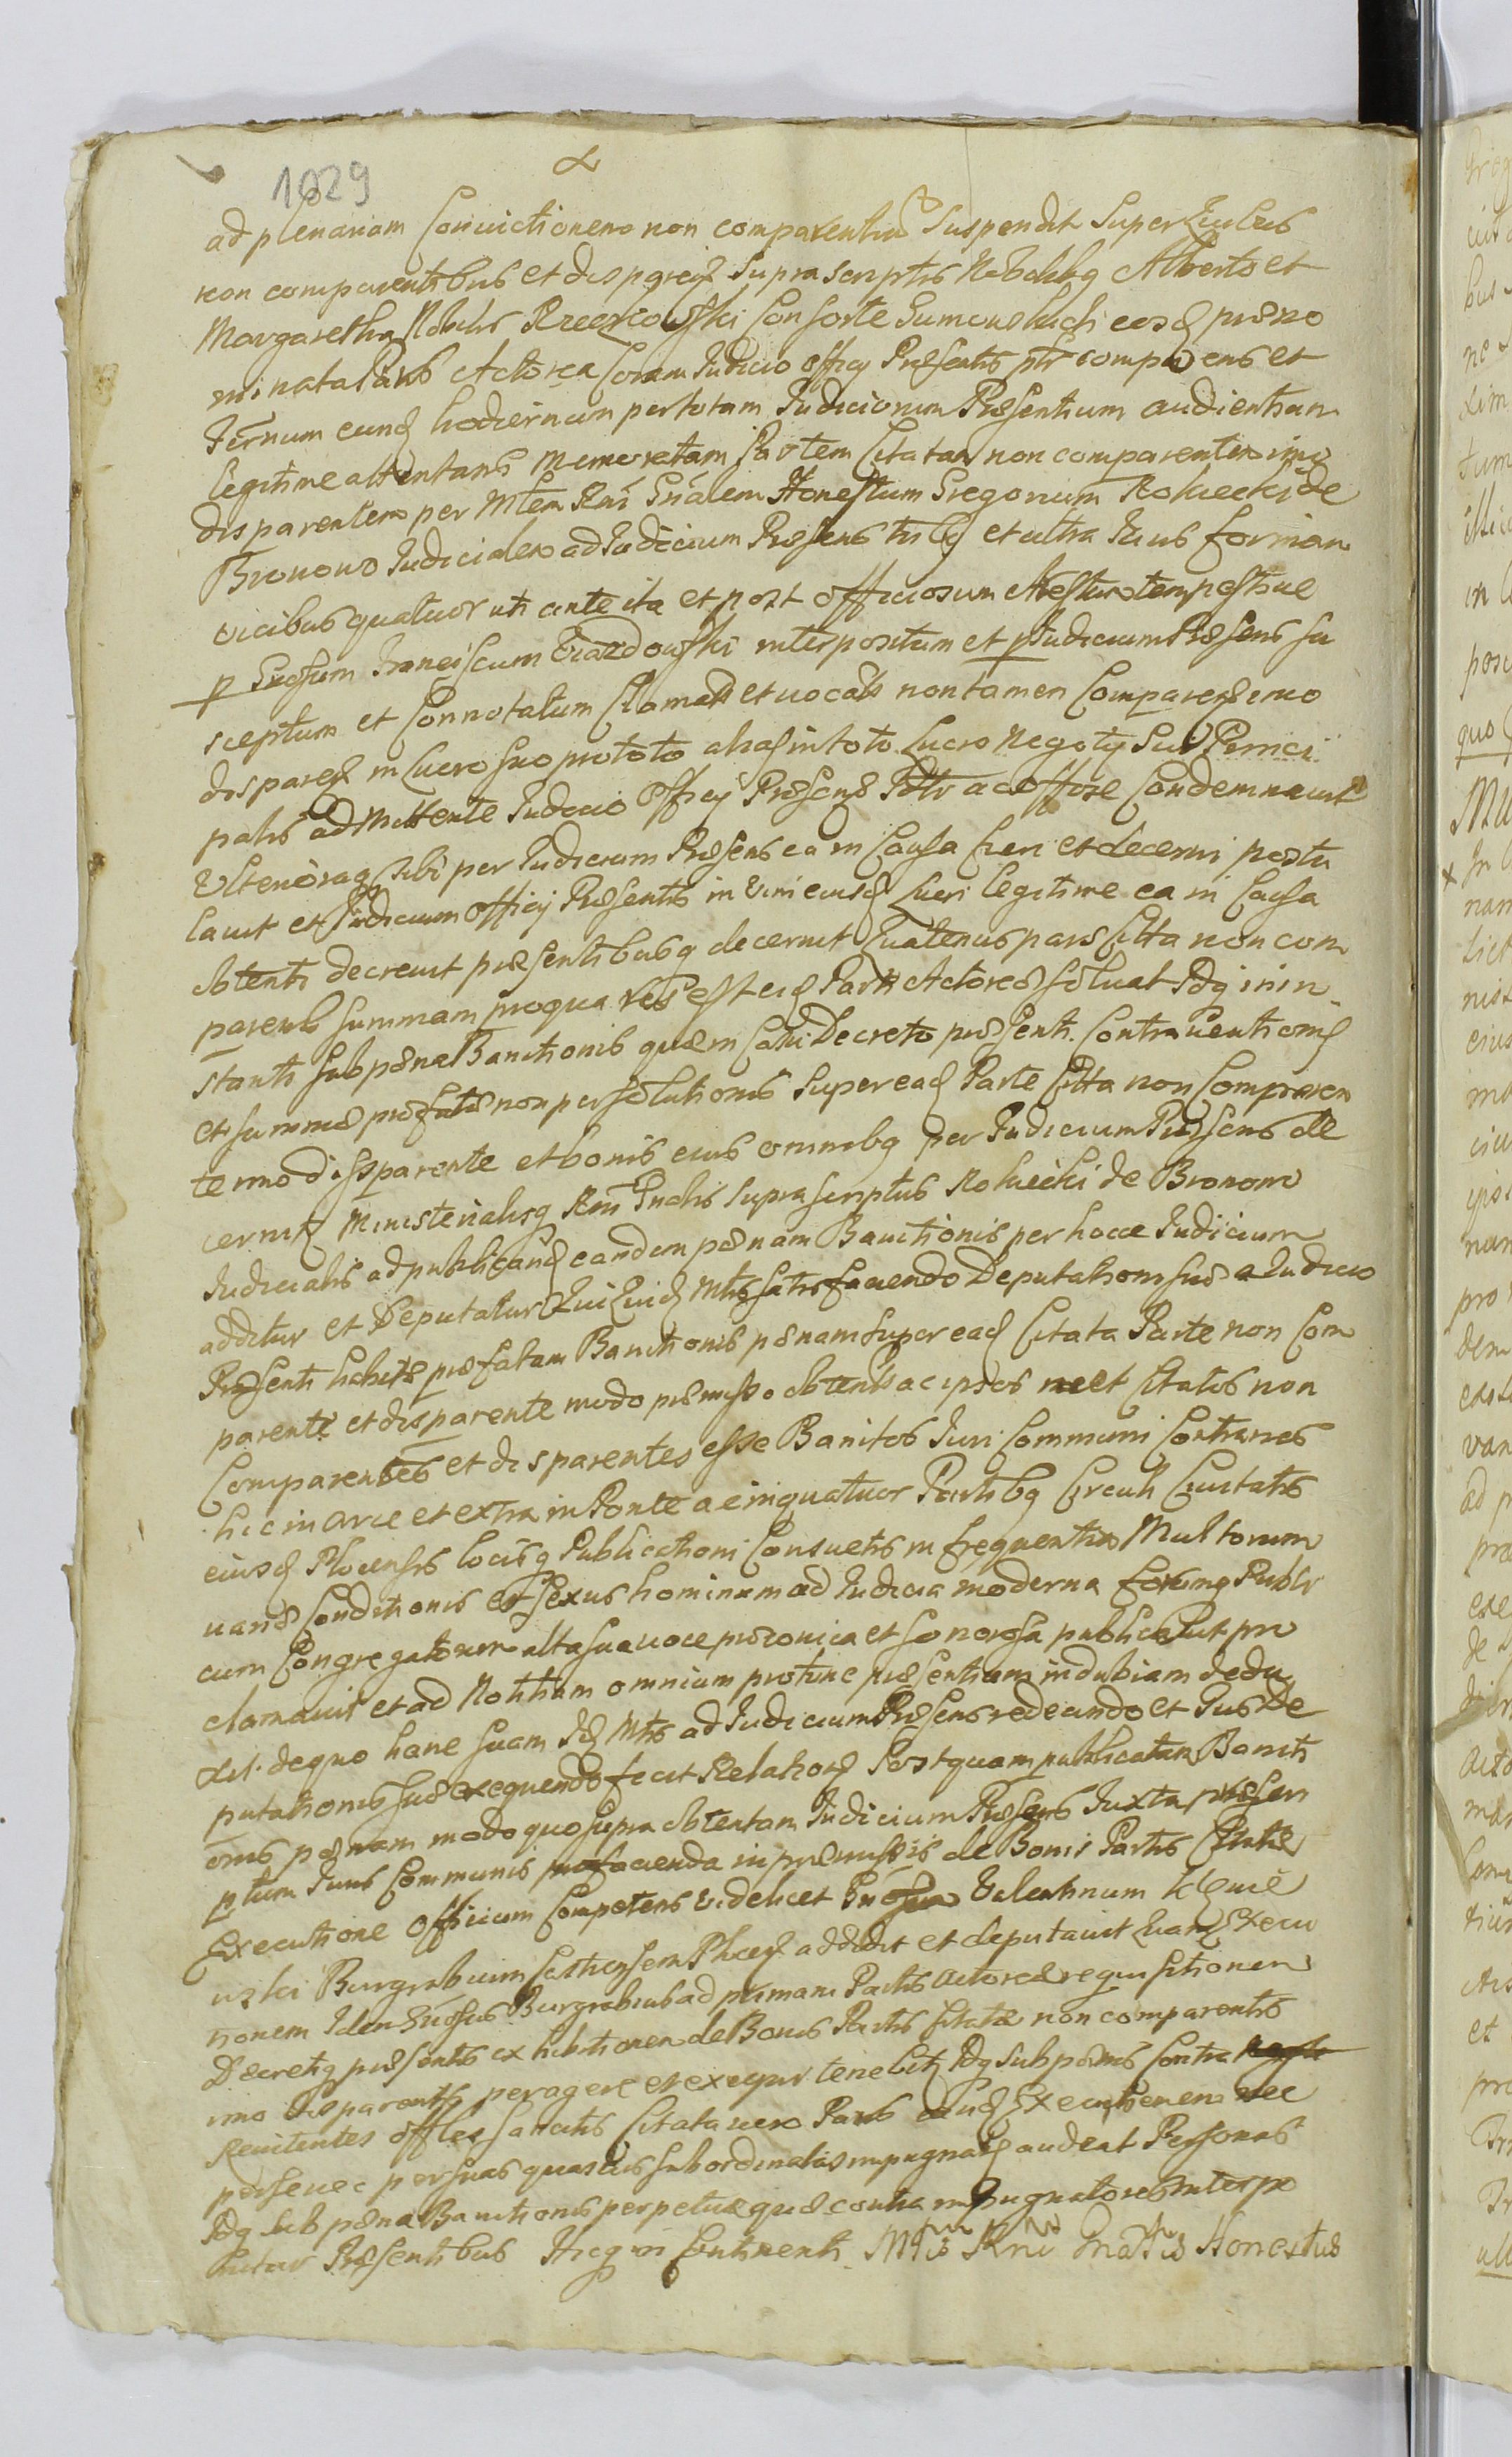 1029
ad plenariam Convictionem non comparentiu Suspendit Super
non comparentibus et disparen supra scriptis Nobilibq Alberto et
Margaretha Nobilis Rzeczkowski Consorte eosq præno
minata Pars Actorea Coram Judicio officij Præsentis ptr comparens et
Ternum eunq hodiernum per totam Judiciorum Præsentium audientiam
legitime attentans Memoratam Partem Citatam non comparentem imo
disparentem per Mtem Rni Gnalem Honestum Gregorium Rokicki de
Bronowo Judicialem ad Judicium Præsens et ultra Juris formam
vicibus quatuor uti ante ita et post officiosum Arestum tempestive
p Grosum Franciscum interpositum et p Judicium Præsens su
sceptum et Connotatum Clamatt et vocatt non tamen Comparen imo
disparen in Lucro suo pro toto alias in toto Lucro Negotij sui Princi
palis admittente Judicio Officij Præsens Pdtr ac offose Condemnavit
Ulterioraq sibi per Judicium Præsens ea in Causa fieri et decerni postu
lavit et Judicium officij Præsentis in vim eiusq Lucri legitime ea in Causa
obtenti decrevit præsentibusq decernit Quatenus pars Citta non com
parens summam pro qua res est eiq Parti Actoreæ solvat Idq in in
stanti sub pæna Banitionis quæ in Casu Decreto præsenti Contraventionis
et summæ præfatæ non persolutionis super eaq Parte Citta non Comparen
te imo disparente et bonis eius omnibq per Judicium Præsens de
cernit Ministerialisq Rni Gnalis supra scriptus Rokicki de Bronowo
Judicialis ad publicanq eandem pænam Banitionis per hocce Judicium
additur et Deputatur Qui Quiq Mtis satisfaciendo Deputationi suæ a Judicio
Præsenti habitæ præfatam Banitionis pænam super eaq Citata Parte non Com
parente et disparente modo præmisso obtentis ac ipsos Citatos non
Comparentes et disparentes esse Banitos Juri Communi Contrarios
hic in Arce et extra in Ponte ac in quatuor Partibq Circuli Civitatis
eiusq Plocensis locisq Publicationi Consuetis in frequentia Multorum
variæ Conditionis et sexus hominum ad Judicia moderna forumq Publi
cum Congregatorum alta sua voce præconica et sonorosa publicavit pro
clamavit et ad Notitiam omnium pro tunc præsentium indubiam dedu
xit. de quo hanc suam Idq Mtis ad Judicium Præsens redeundo et Jus De
putationis suæ exequendo fecit Relationq Postquam publicatam Baniti
onis pænam modo quo supra obtentam Judicium Præsens Juxta præscri
ptum Juris Communis pro facienda in præmissis de Bonis Partis Citatæ
Executione Officium Competens videlicet Grosum Valentinum
Burgrabium Castrensem Plocen addidit et deputavit Quamq Execu
tionem Idem Grosus Burgrabius ad primam Partis Actoreæ requisitionem
Decretiq præsentis exhibitionem de Bonis Partis Citatæ non comparentis
imo disparentis peragere et exequi tenebitq Idq sub pænis Contra
Renitentes offles sancitis Citata vero Pars eanq Executionem nec
per se nec per suas quasvis subordinatas impugnareq audeat Personas
Idq sub pæna Banitionis perpetuæ quæ contra impugnatores interpo
nitur Præsentibus Hicq in Continenti Mtis Rni Gnalis Honestus